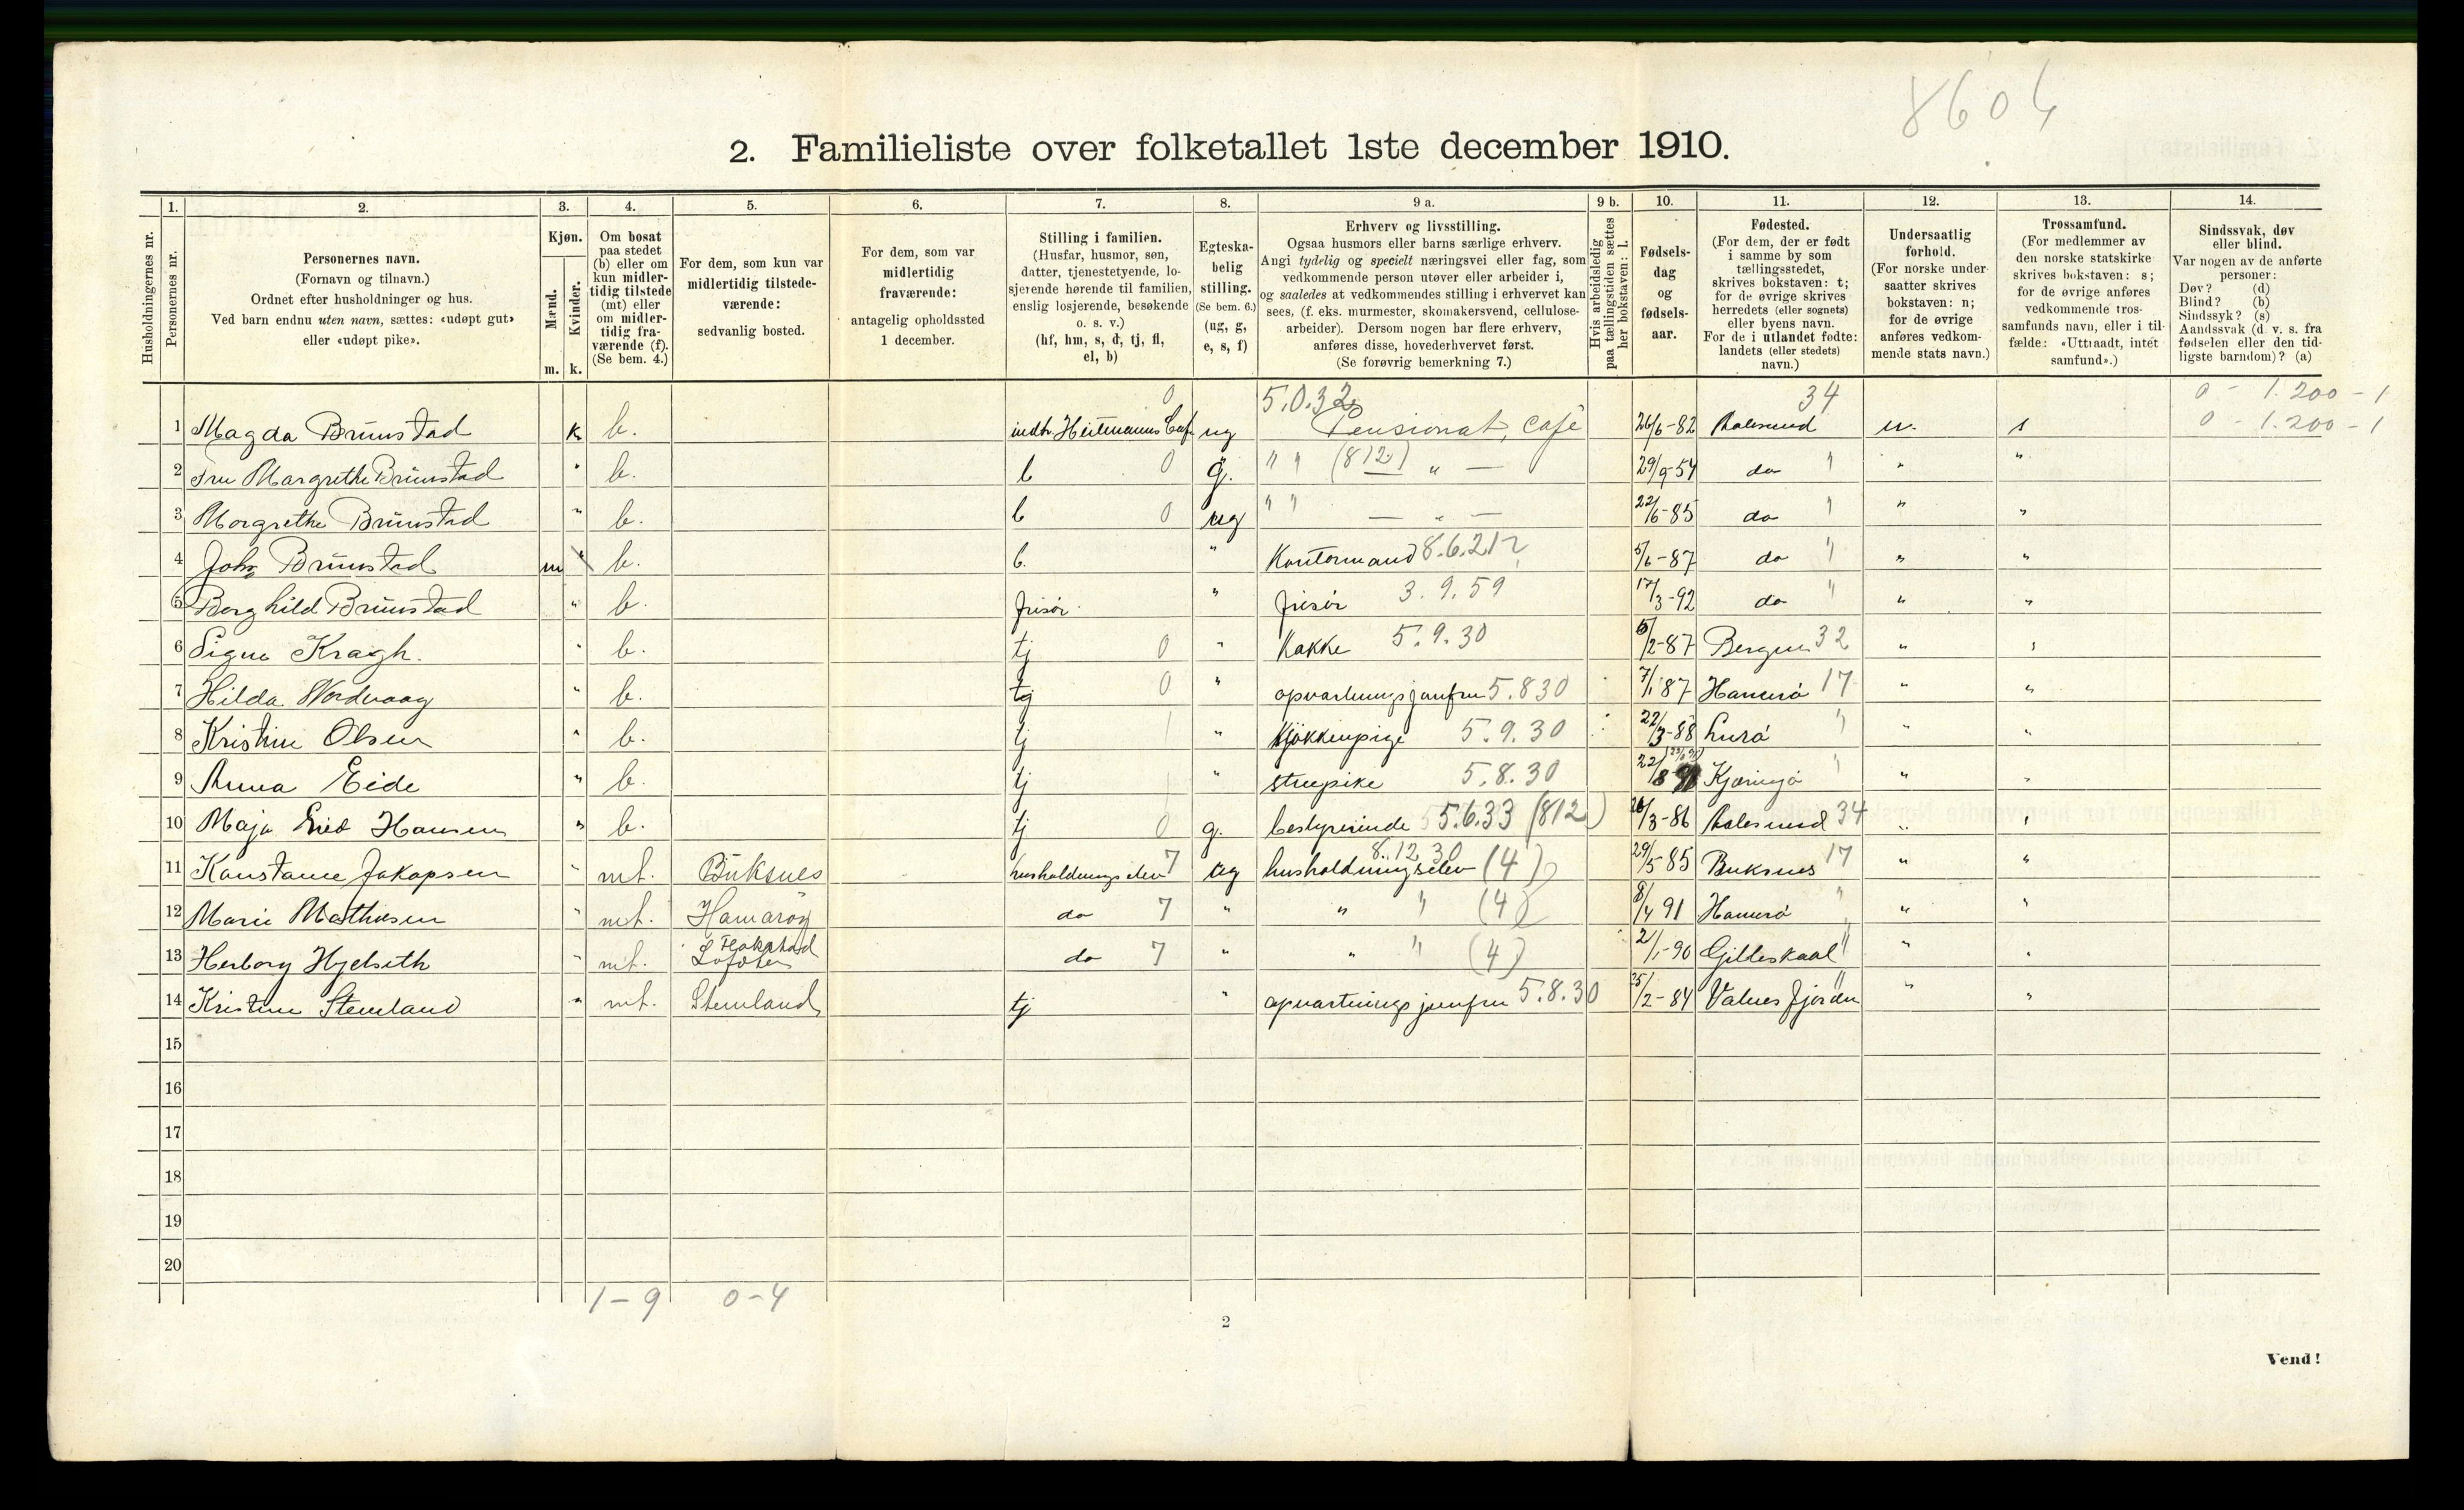 8604
2. Familieliste over folketallet 1ste december 1910.
Husholdningernes nr.
1. Personernes nr.
2. Personernes navn. (Fornavn og tilnavn.) Ordnet efter husholdninger og hus. Ved barn endnu uten navn, sættes: «udøpt gut» eller «udøpt pike».
3. Kjøn. Mænd. m. Kvinder. k.
4. Om bosat paa stedet (b) eller om kun midlertidig tilstede (mt) eller om midlertidig fraværende (f). (Se bem. 4.)
5. For dem, som kun var midlertidig tilstedeværende: sedvanlig bosted.
6. For dem, som var midlertidig fraværende: antagelig opholdssted 1 december.
7. Stilling i familien. (Husfar, husmor, søn, datter, tjenestetyende, losjerende hørende til familien, enslig losjerende, besøkende o. s. v.) (hf, hm, s, d, tj, fl, el, b)
8. Egteskabelig stilling. (Se bem. 6.) (ug, g, e, s, f)
9 a. Erhverv og livsstilling. Ogsaa husmors eller barns særlige erhverv. Angi tydelig og specielt næringsvei eller fag, som vedkommende person utøver eller arbeider i, og saaledes at vedkommendes stilling i erhvervet kan sees, (f. eks. murmester, skomakersvend, cellulosearbeider). Dersom nogen har flere erhverv, anføres disse, hovederhvervet først. (Se forøvrig bemerkning 7.)
9 b. Hvis arbeidsledig paa tællingstiden sættes her bokstaven: l.
10. Fødselsdag og fødselsaar.
11. Fødested. (For dem, der er født i samme by som tællingsstedet, skrives bokstaven: t; for de øvrige skrives herredets (eller sognets) eller byens navn. For de i utlandet fødte: landets (eller stedets) navn.)
12. Undersaatlig forhold. (For norske undersaatter skrives bokstaven: n; for de øvrige anføres vedkommende stats navn.)
13. Trossamfund. (For medlemmer av den norske statskirke skrives bokstaven: s; for de øvrige anføres vedkommende trossamfunds navn, eller i tilfælde: «Uttraadt, intet samfund».)
14. Sindssvak, døv eller blind. Var nogen av de anførte personer: Døv? (d) Blind? (b) Sindssyk? (s) Aandssvak (d. v. s. fra fødselen eller den tidligste barndom)? (a)
0 5.0.32 34 0 - 1.200 - 1
1 Magda Brünstad k b. ug Pensionat, Café 26/6-82 Aalesund n. s 0 - 1.200 - 1
2 Fru Margrethe Brünstad " b. b 0 g. " " (812) " — 29/9-54 do " " "
3 Margrethe Brünstad " b. b 0 ug " " — " — 22/6-85 do " " "
4 Joh. Brünstad m b. b. " Kontormand 8.6.212 5/6-87 do " " "
5 Borghild Brünstad " b. Frisør. " Frisør 3.9.59 17/3-92 do " " "
6 Signe Kragh. " b. tj 0 " Kokke 5.9.30 5/2-87 Bergen 32 " "
7 Hilda Nordvaag " b. tj 0 " opvartningsjomfru 5.8.30 7/1 87 Hamerø 17 " "
8 Kristine Olsen " b. tj 1 " Kjøkkenpige 5.9.30 22/3-88 Lurø " " "
9 Anna Eide " b. tj 1 " stuepike 5.8.30 22/8 91 Kjæringø " " "
10 Maja Hansen " b. tj 0 g. bestyrerinde 5.6.33 (812) 26/3-86 Aalesund 34 " "
8.12.30
11 Konstanse Jakopsen " mt. Buksnes husholdningselev 7 ug husholdningselev (4) 29/5 85 Buksnes 17 " "
12 Marie Mathisen " mt. Hamarøy do 7 " " " (4) 8/4 91 Hamerø " " "
13 Herborg Hjelseth " mt. Lofoten do 7 " " " (4) 2/1-90 Gildeskaal " " "
14 Kristine Stemland " mt. Stemland tj " opvartningsjomfru 5.8.30 25/2-84 Valnesfjorden " " "
15
16
17
18
19
20
1 - 9 0 - 4
2
Vend!